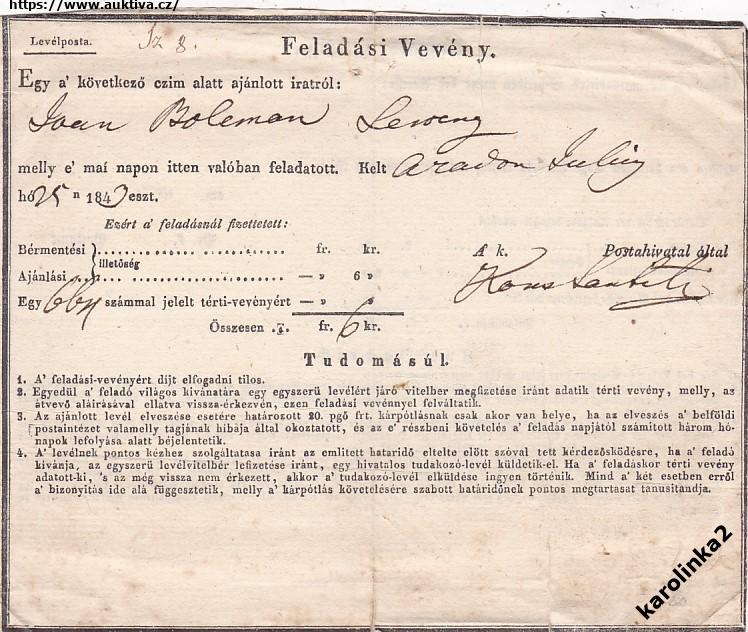 https://www.auktiva.cz/
Levélposta.
Sz 8.
Feladási Vevény.
Egy a' következő czim alatt ajánlott iratról:
Ivan Boleman
melly e' mai napon itten valóban feladatott. Kelt Aradon July
hó 25 n 1843 eszt.
Ezért a' feladásnál fizettetett:
Bérmentési } illetőség fr. kr.
Ajánlási } — „ 6 „
A k. Postahivatal által
Egy számmal jelelt térti-vevényért — „ „
Összesen fr. 6 kr.
Tudomásúl.
1. A' feladási-vevényért dijt elfogadni tilos.
2. Egyedül a' feladó világos kivánatára egy egyszerü levélért járó vitelber megfizetése iránt adatik térti vevény, melly, az
átvevő aláirásával ellátva vissza-érkezvén, ezen feladási vevénnyel felváltatik.
3. Az ajánlott levél elveszése esetére határozott 20. pgő frt. kárpótlásnak csak akor van helye, ha az elveszés a' belföldi
postaintézet valamelly tagjának hibája által okoztatott, és az e' részbeni követelés a' feladás napjától számított három hó-
napok lefolyása alatt béjelentetik.
4. A' levélnek pontos kézhez szolgáltatasa iránt az emlitett hataridő eltelte előtt szóval tett kérdezősködésre, ha a' feladó
kivánja, az egyszerü levélvitelbér lefizetése iránt, egy hivatalos tudakozó-levél küldetik-el. Ha a' feladáskor térti vevény
adatott-ki, 's az még vissza nem érkezett, akkor a' tudakozó-levél elküldése ingyen történik. Mind a' két esetben erről
a' bizonyitás ide alá függesztetik, melly a' kárpótlás követelésére szabott határidőnek pontos megtartasat tanusitandja.
karolinka2